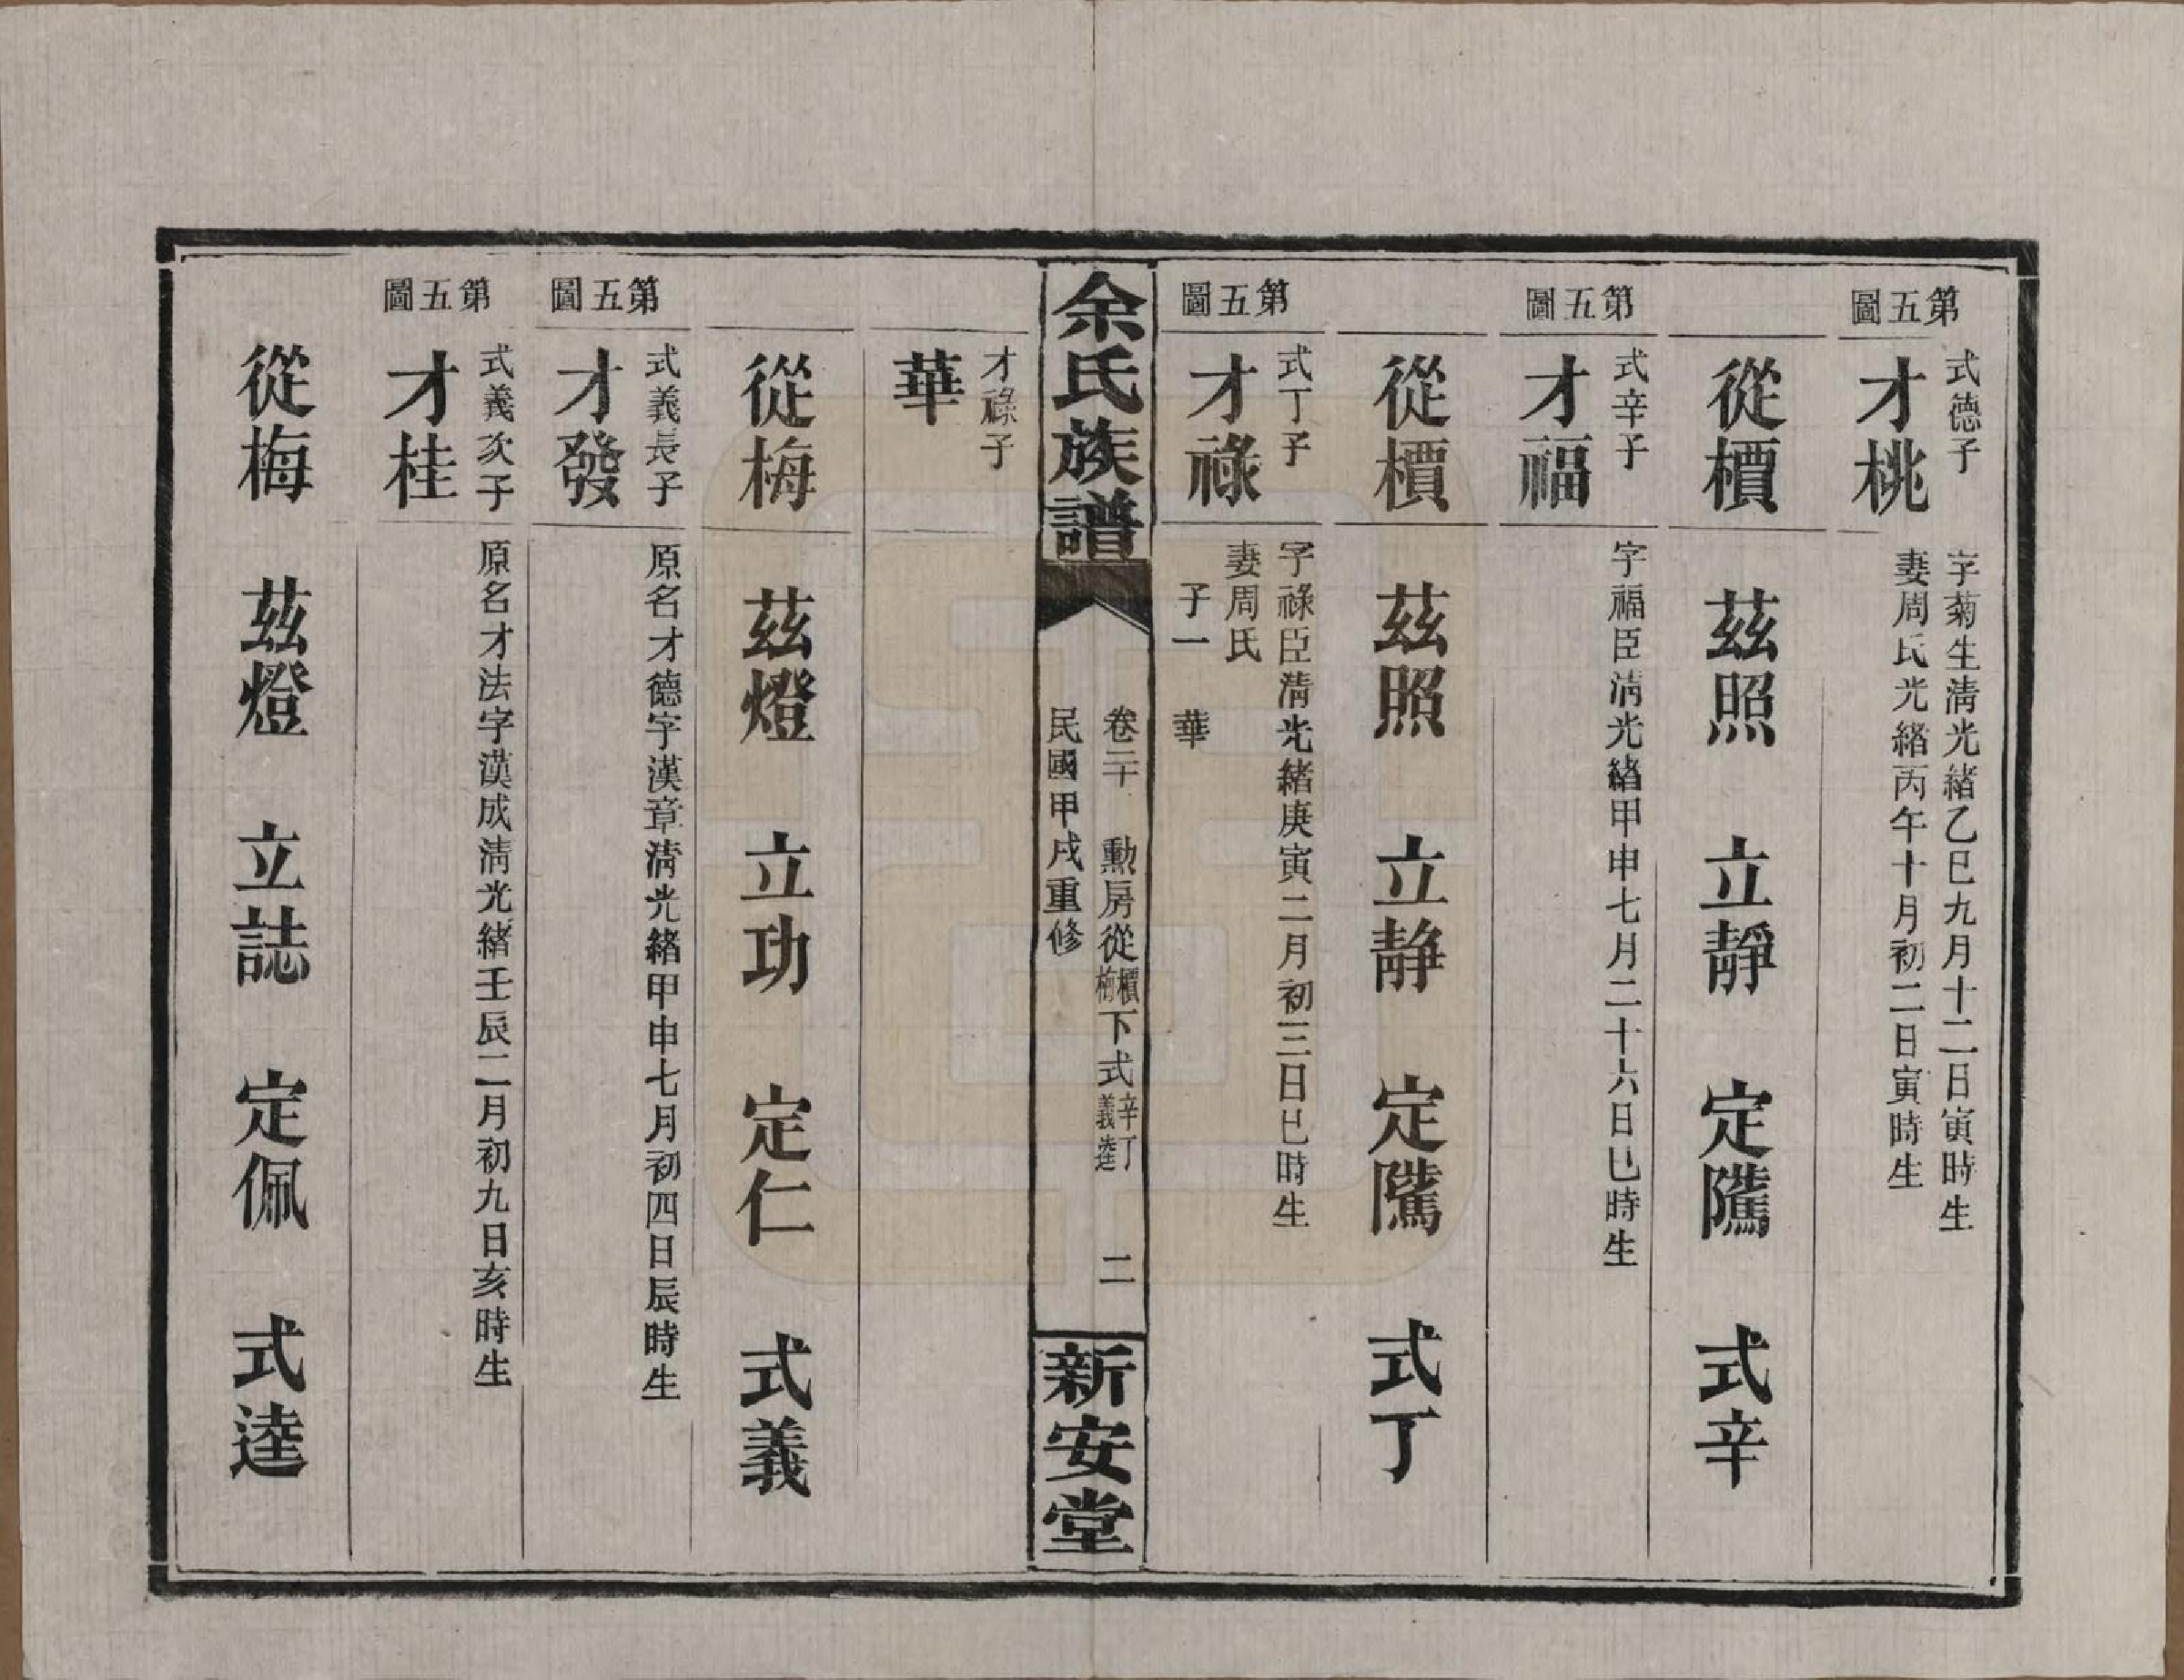 第五圖
式德子
才桃
字菊生淸光緒乙巳九月十二日寅時生
妻周氏光緒丙午十月初二日寅時生
從檟 茲照 立靜 定隲 式辛
第五圖
式辛子
才福
字福臣淸光緒甲申七月二十六日巳時生
從檟 茲照 立靜 定隲 式丁
第五圖
式丁子
才祿
字祿臣淸光緒庚寅二月初三日巳時生
妻周氏
子一 華
余氏族譜
卷二十 勳房從檟梅下式辛丁義逵 二
民國甲戌重修
新安堂
才祿子
華
從梅 茲燈 立功 定仁 式義
第五圖
式義長子
才發
原名才德字漢章淸光緒甲申七月初四日辰時生
第五圖
式義次子
才桂
原名才法字漢成淸光緒壬辰二月初九日亥時生
從梅 茲燈 立誌 定佩 式逵